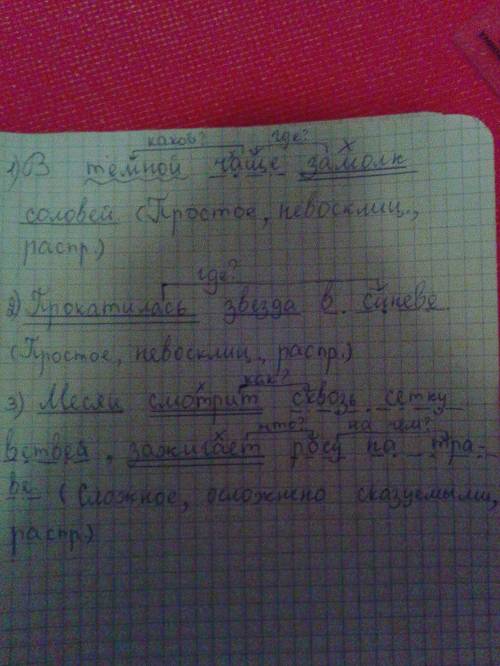 каков? где?
1) В тёмной чаще замолк
соловей (Простое, невосклиц.,
распр.)
где?
2) Прокатилась звезда в синеве
(Простое, невосклиц., распр.)
как?
3) Месяц смотрит сквозь сетку
что? на чём?
ветвей, зажигает росу на тра-
ве (Сложное, осложнено сказуемыми,
распр.)